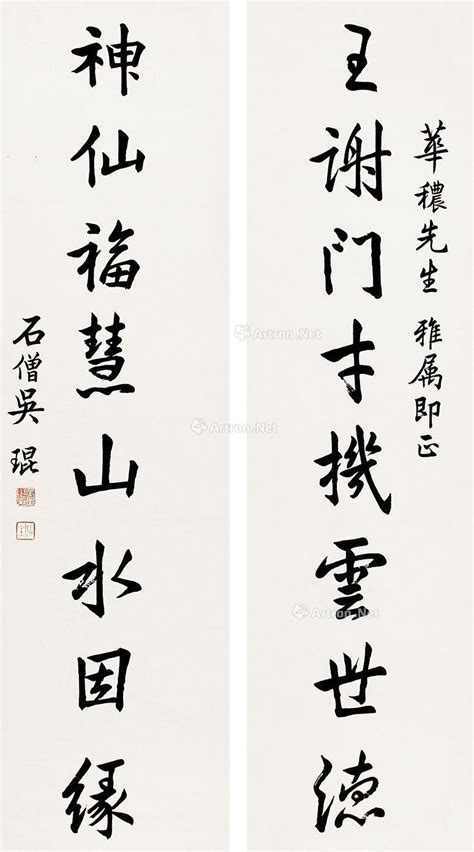 華穠先生 雅属即正
王謝門才機雲世德
神仙福慧山水因緣
石僧吳琨
Artron.Net
Artron.Net
Artron.Net
Artron.Net